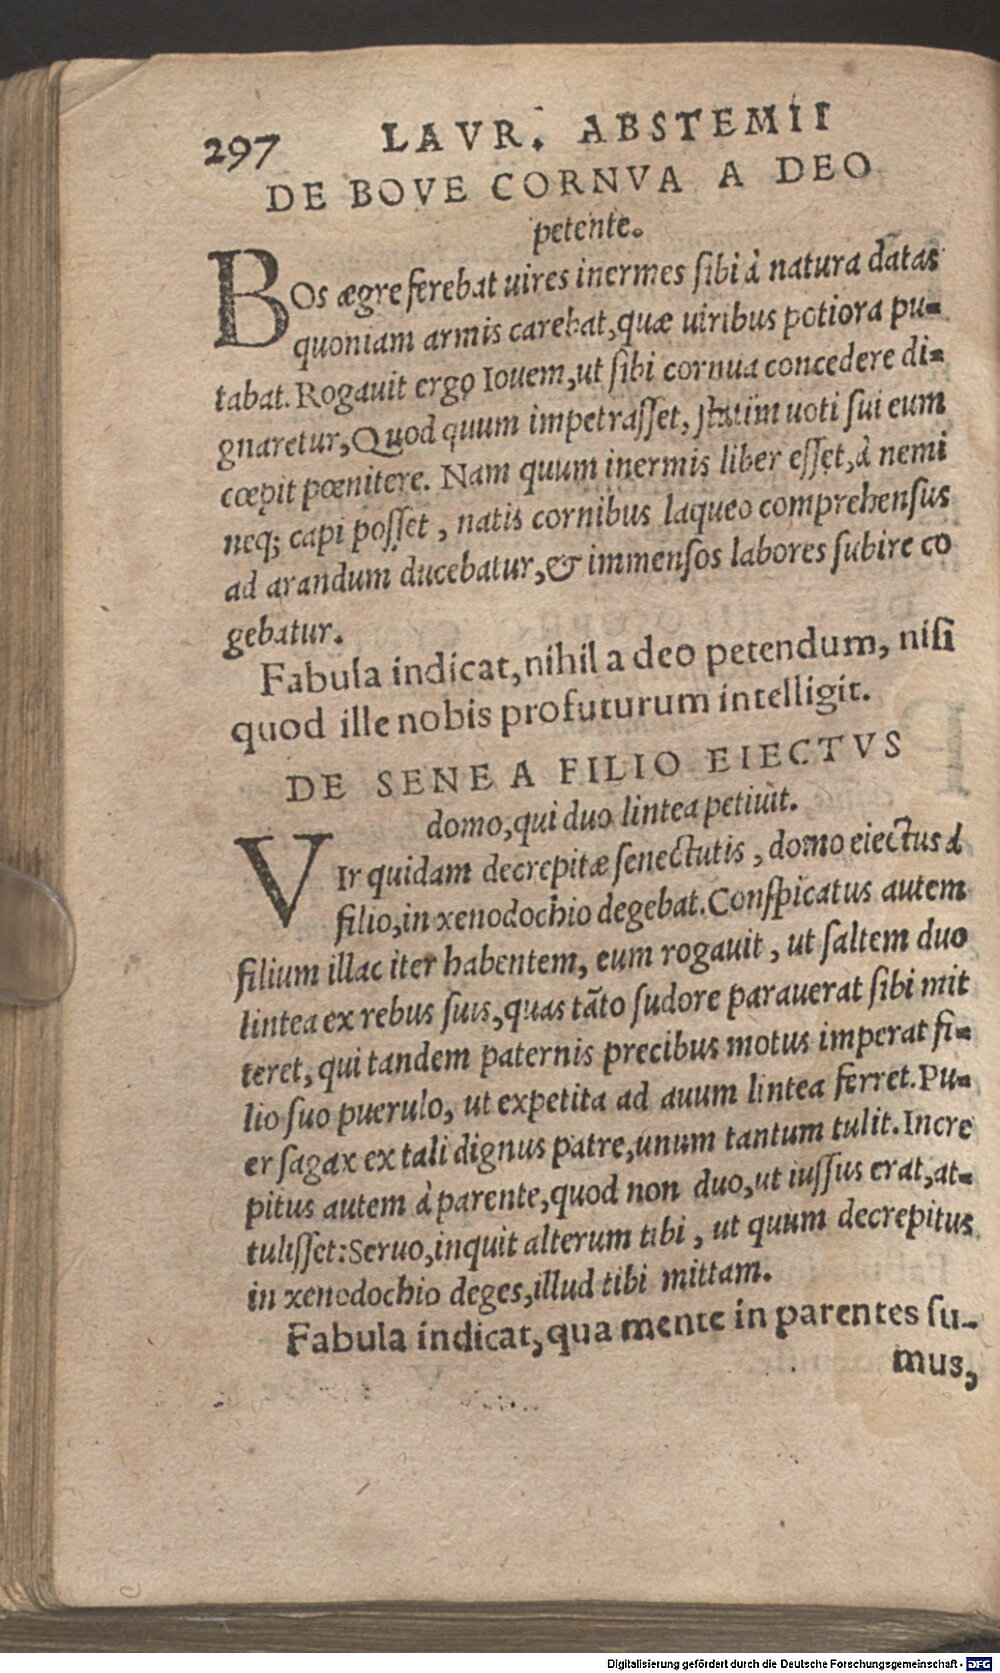 297 LAVR. ABSTEMII
DE BOVE CORNVA A DEO
petente.
BOs ægre ferebat uires inermes ſibi à natura datas
quoniam armis carebat, quæ uiribus potiora pu=
tabat. Rogauit ergo Iouem, ut ſibi cornua concedere di=
gnaretur, Quod quum impetraſſet, ſtatim uoti ſui eum
cœpit pœnitere. Nam quum inermis liber eſſet, à nemi
neq; capi poſſet, natis cornibus laqueo comprehenſus
ad arandum ducebatur, & immenſos labores ſubire co
gebatur.
Fabula indicat, nihil a deo petendum, niſi
quod ille nobis profuturum intelligit.
DE SENE A FILIO EIECTVS
domo, qui duo lintea petiuit.
VIr quidam decrepitæ ſenectutis, domo eiectus à
filio, in xenodochio degebat. Conſpicatus autem
filium illac iter habentem, eum rogauit, ut ſaltem duo
lintea ex rebus ſuis, quas tãto ſudore parauerat ſibi mit
teret, qui tandem paternis precibus motus imperat fi=
lio ſuo puerulo, ut expetita ad auum lintea ferret. Pu=
er ſagax ex tali dignus patre, unum tantum tulit. Incre
pitus autem à parente, quod non duo, ut iuſſus erat, at=
tuliſſet: Seruo, inquit alterum tibi, ut quum decrepitus
in xenodochio deges, illud tibi mittam.
Fabula indicat, qua mente in parentes ſu-
mus,
Digitalisierung gefördert durch die Deutsche Forschungsgemeinschaft - DFG